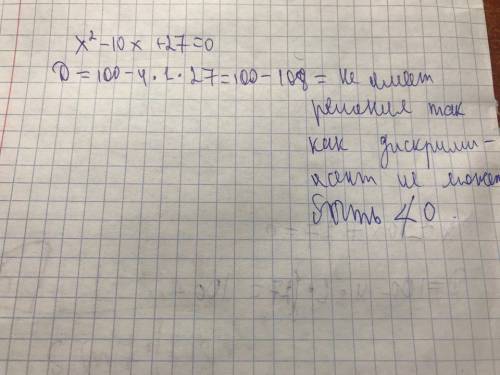 x² - 10x + 27 = 0
D = 100 - 4 · 1 · 27 = 100 - 108 = не имеет
решения так
как дискрими-
нант не может
быть < 0.